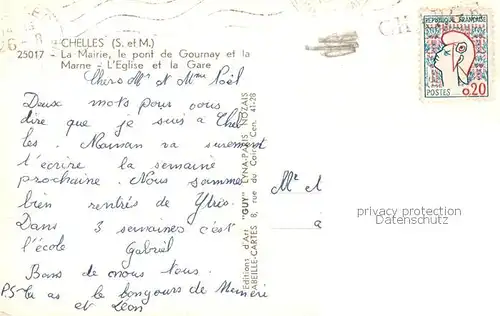 CHELLES (S. et M.)
25017 - La Mairie, le pont de Gournay et la
Marne - L'Eglise et la Gare
Chers Mr et Mme Noël
Deux mots pour vous
dire que je suis à Chel
les. Maman va surement
t'écrire la semaine
prochaine. Nous sommes
bien rentrés de
Dans 3 semaines c'est
l'école Gabriel
Bons de nous tous.
P.S tu as le bonjours de Mémére
et Léon
Editions d'Art "GUY" LYNA-PARIS NOZAIS
ABEILLE-CARTES 8, rue du Caire Cen. 41-28
REPUBLIQUE FRANÇAISE
POSTES 0,20
CH
Mr
à
privacy protection
Datenschutz